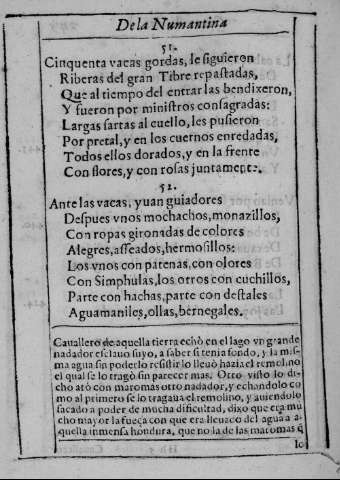 De la Numantina
51.
Cinquenta vacas gordas, le siguieron
Riberas del gran Tibre repastadas,
Que al tiempo del entrar las bendixeron,
Y fueron por ministros consagradas:
Largas sartas al cuello, les pusieron
Por pretal, y en los cuernos enredadas,
Todos ellos dorados, y en la frente
Con flores, y con rosas juntamente.
52.
Ante las vacas, yuan guiadores
Despues vnos mochachos, monazillos,
Con ropas gironadas de colores
Alegres, asseados, hermosillos:
Los vnos con patenas, con olores
Con Simphulas, los otros con cuchillos,
Parte con hachas, parte con destales
Aguamaniles, ollas, bernegales.
Cauallero de aquella tierra echò en el lago vn grande
nadador esclauo suyo, a saber si tenia fondo, y la mis-
ma agua sin poderlo resistir lo lleuò hazia el remolino
el qual se lo tragò sin parecer mas. Otro visto lo di-
cho atò con maromas otro nadador, y echandolo co
mo al primero se lo tragaua el remolino, y auiendolo
sacado a poder de mucha dificultad, dixo que era mu
cho mayor la fuerça con que era lleuado del agua a a-
quella inmensa hondura, que no la de las maromas q̃
lo